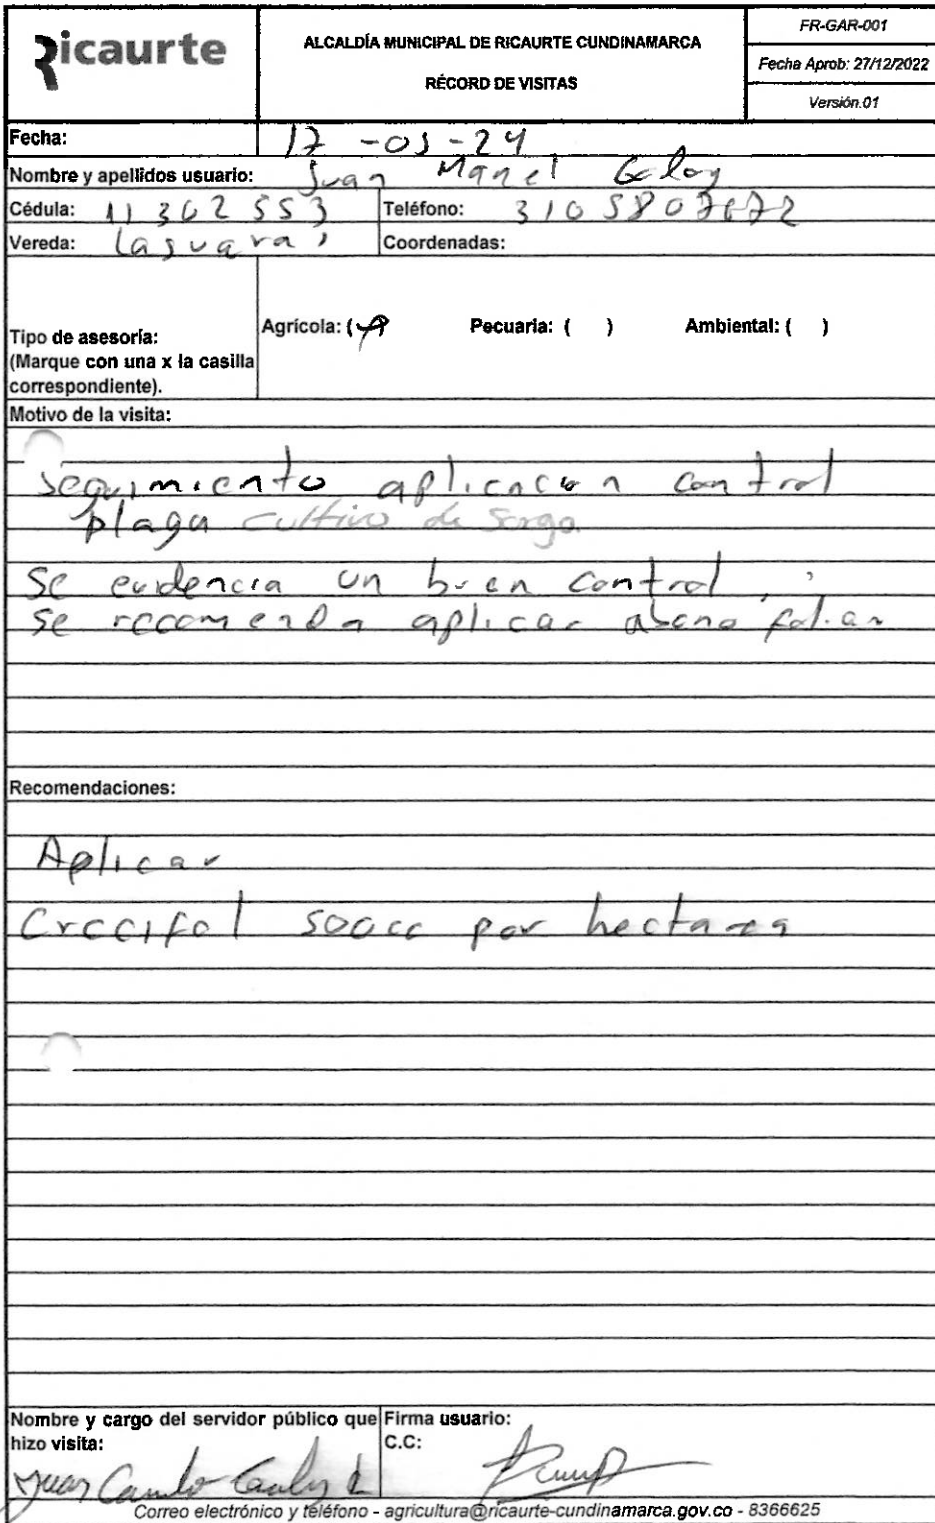 Ricaurte
ALCALDÍA MUNICIPAL DE RICAURTE CUNDINAMARCA
RÉCORD DE VISITAS
FR-GAR-001
Fecha Aprob: 27/12/2022
Versión.01
Fecha: 17 -05-24
Nombre y apellidos usuario: Juan Manel
Cédula: 11302553 Teléfono:
Vereda: Coordenadas:
Tipo de asesoría:
(Marque con una x la casilla
correspondiente).
Agrícola: ( Pecuaria: ( ) Ambiental: ( )
Motivo de la visita:
seguimiento aplicacion control
plaga cultivo de Sorgo
Se evidencia un buen control,
se recomenda aplicar abono foliar
Recomendaciones:
Aplicar
Crecifol 500cc por hectarea
Nombre y cargo del servidor público que
hizo visita:
Juan Camilo
Firma usuario:
C.C:
Correo electrónico y teléfono - agricultura@ricaurte-cundinamarca.gov.co - 8366625